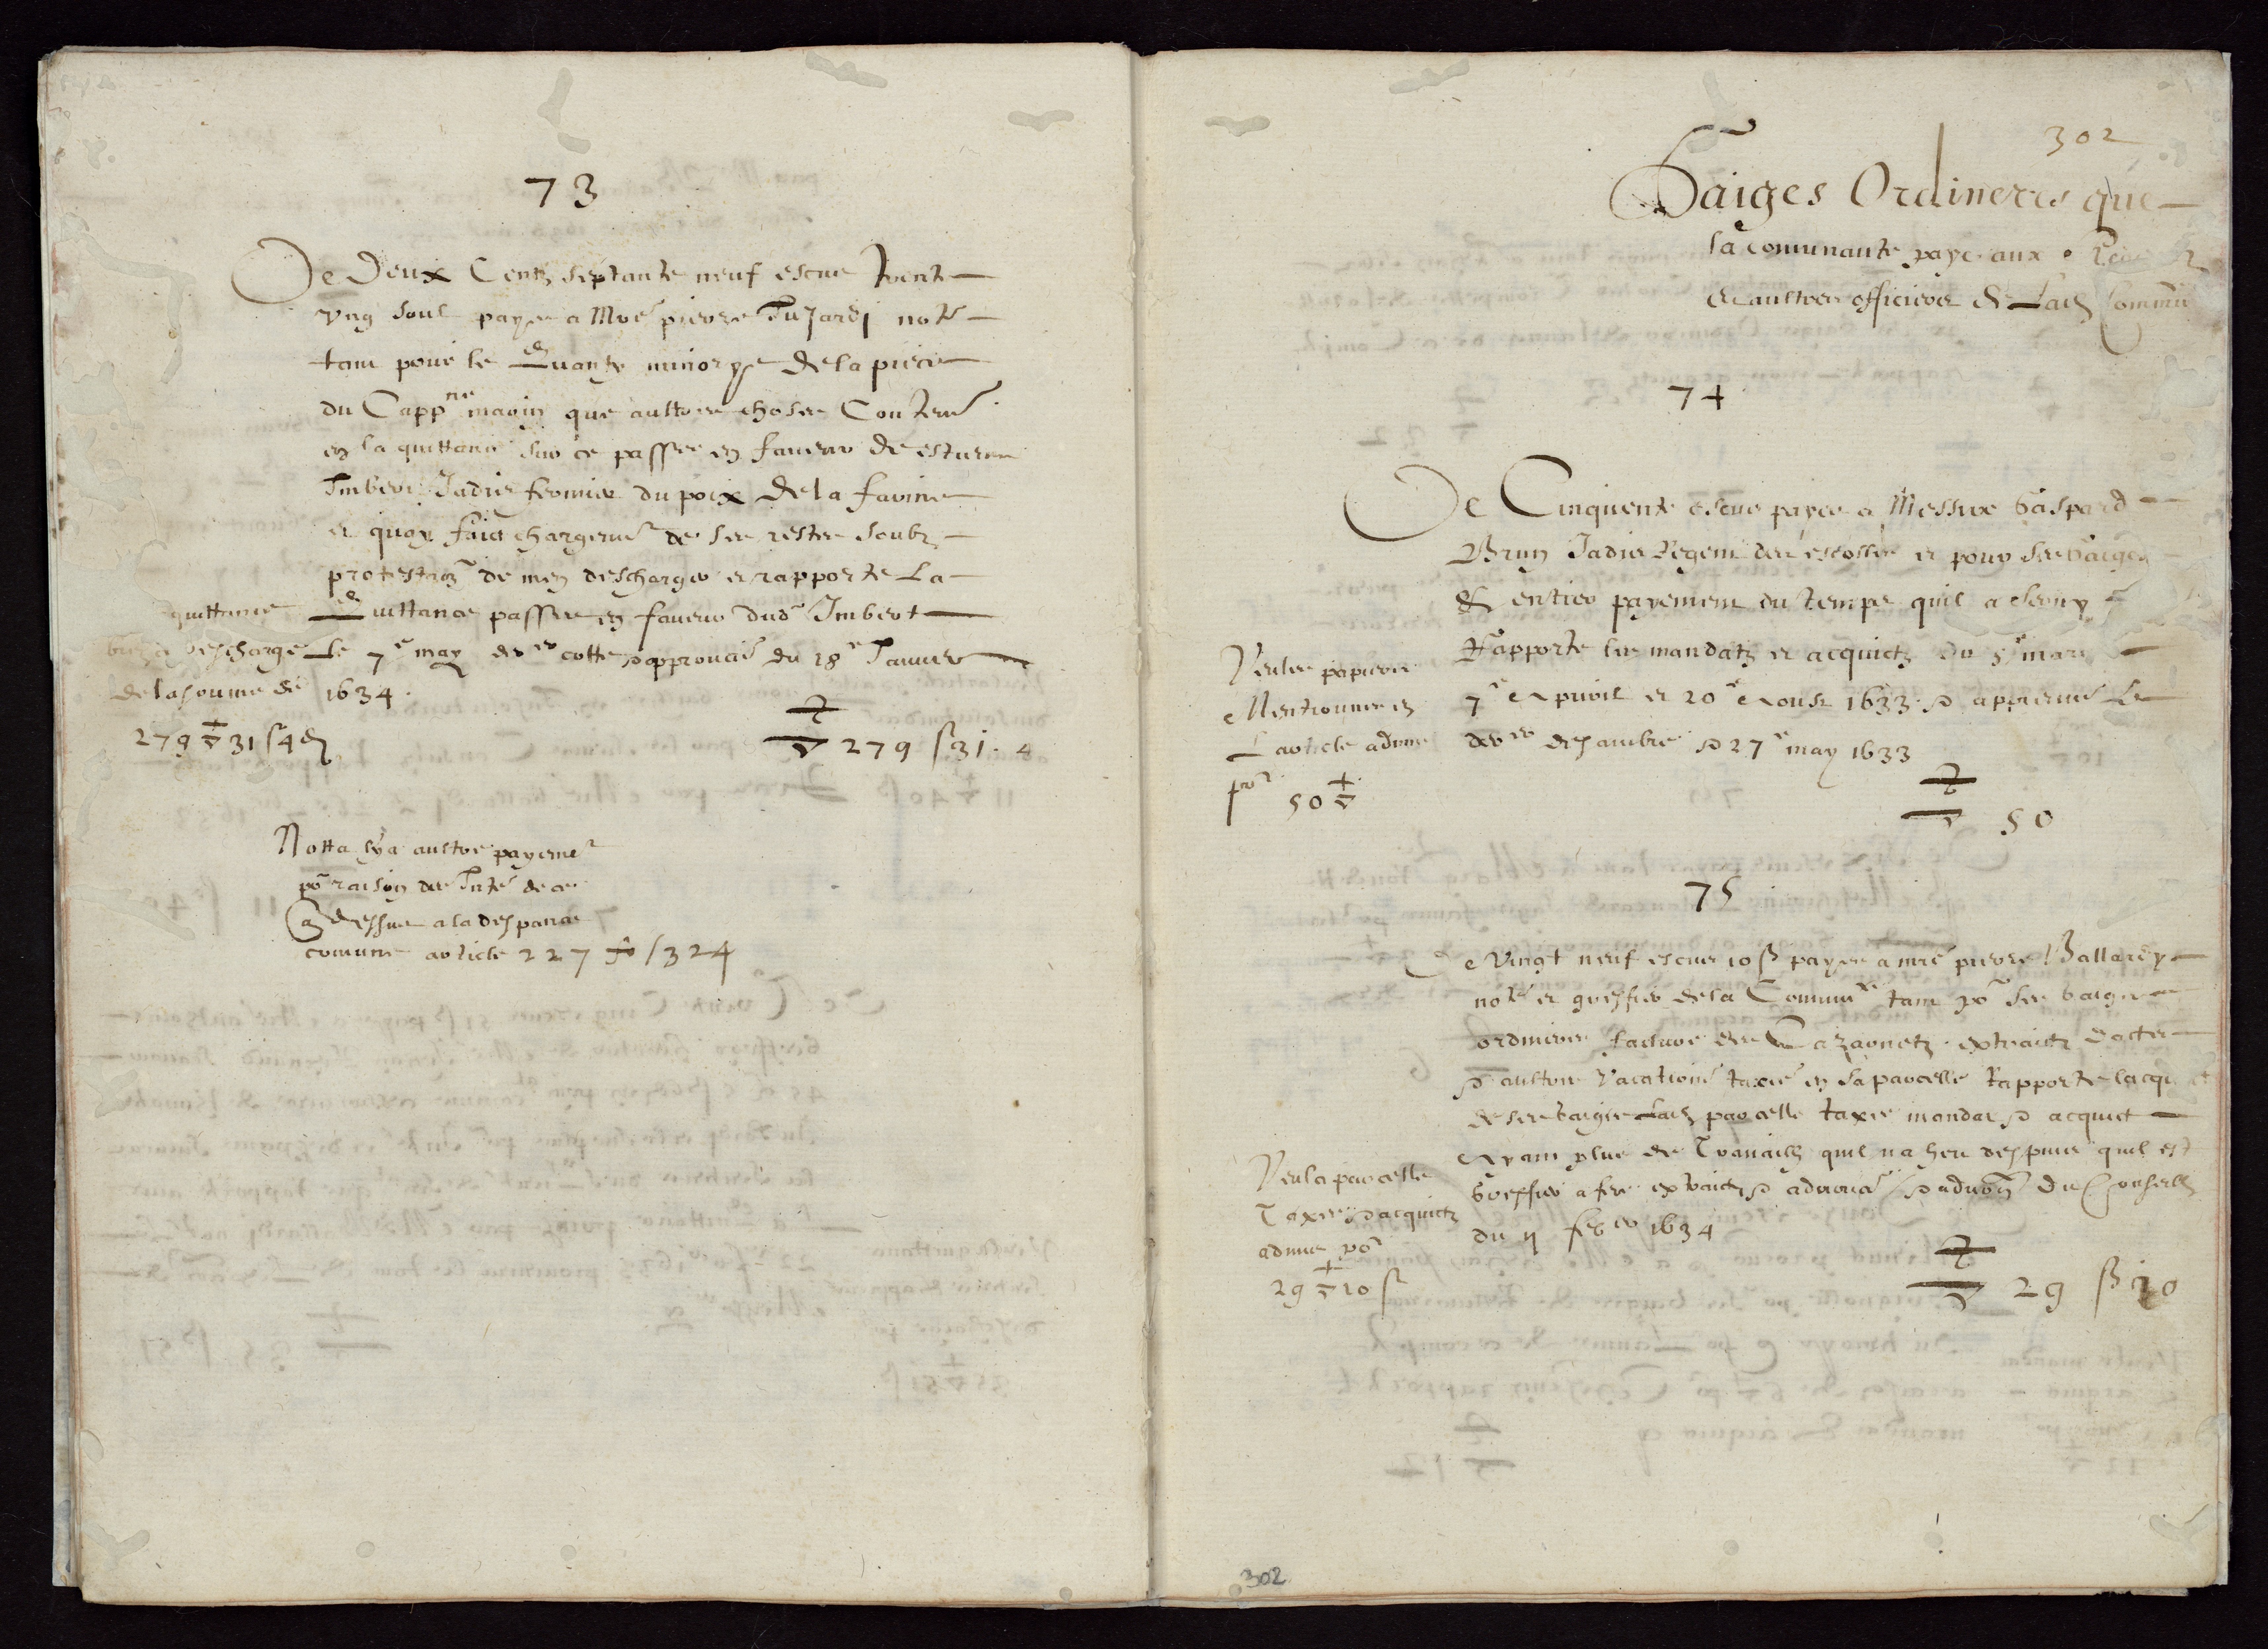 73
De Deux Centz septante neuf escus trent
ung soul payes a Moe pierre Jujardi not
tant pour le quanty minorye de la piece
du Cappne marin que aultres choses Contenu
en la quittance sur ce passee en faveur de esturen
Imbert Jadis fermier du poix de la farine
et quoy faict chargement de ses restes soubz
protestaõn de men descharger et rapporte La
Quittance passee en faveur dud Imbert
Le 7e may dernier cotte approuvee du 18e Janvier
1634.
279 ß 31. 4
quittance
descharge
de la soume de
279 31 ß 4 d
Notta sya aultre payeme
po raison des Inte de ce
cy dessus a la despance
comune article 227 fo 324
302
Gaiges Ordineres que
la comunaute paye aux
et aultres officiers de Lad Commu
74
De Cinquente escus payes a Messire Gaspard
Brun Jadis Regent des escolles et pour ses Gaiges
& entier payement du temps quil a servy
Rapporte les mandatz et acquictz du 5e mars
7e Apvril et 20e Aoust 1633
derer 27e may 1633
50
Veu les papiers
Mentionnes en
L article admis
por 50
75
De Vingt neuf escus 10 ß payes a mre pierre Ballardy
notre et greffier de la Commute tant po ses Gaiges
ordineres facture des Cazarnetz extraictz dactes
& aultres vacations taxes en sa parcelle Rapporte lacquit
de ses Gaiges Lad parcelle taxee mandat & acquict
Ayant plus de Travailh quil na heu despuis quil est
Greffier a fere extraictz du Conseilh
du 11 febrer 1634
29 ß 10
Veu la parcelle
Taxee & acquictz
admis por
29 10 ß
302